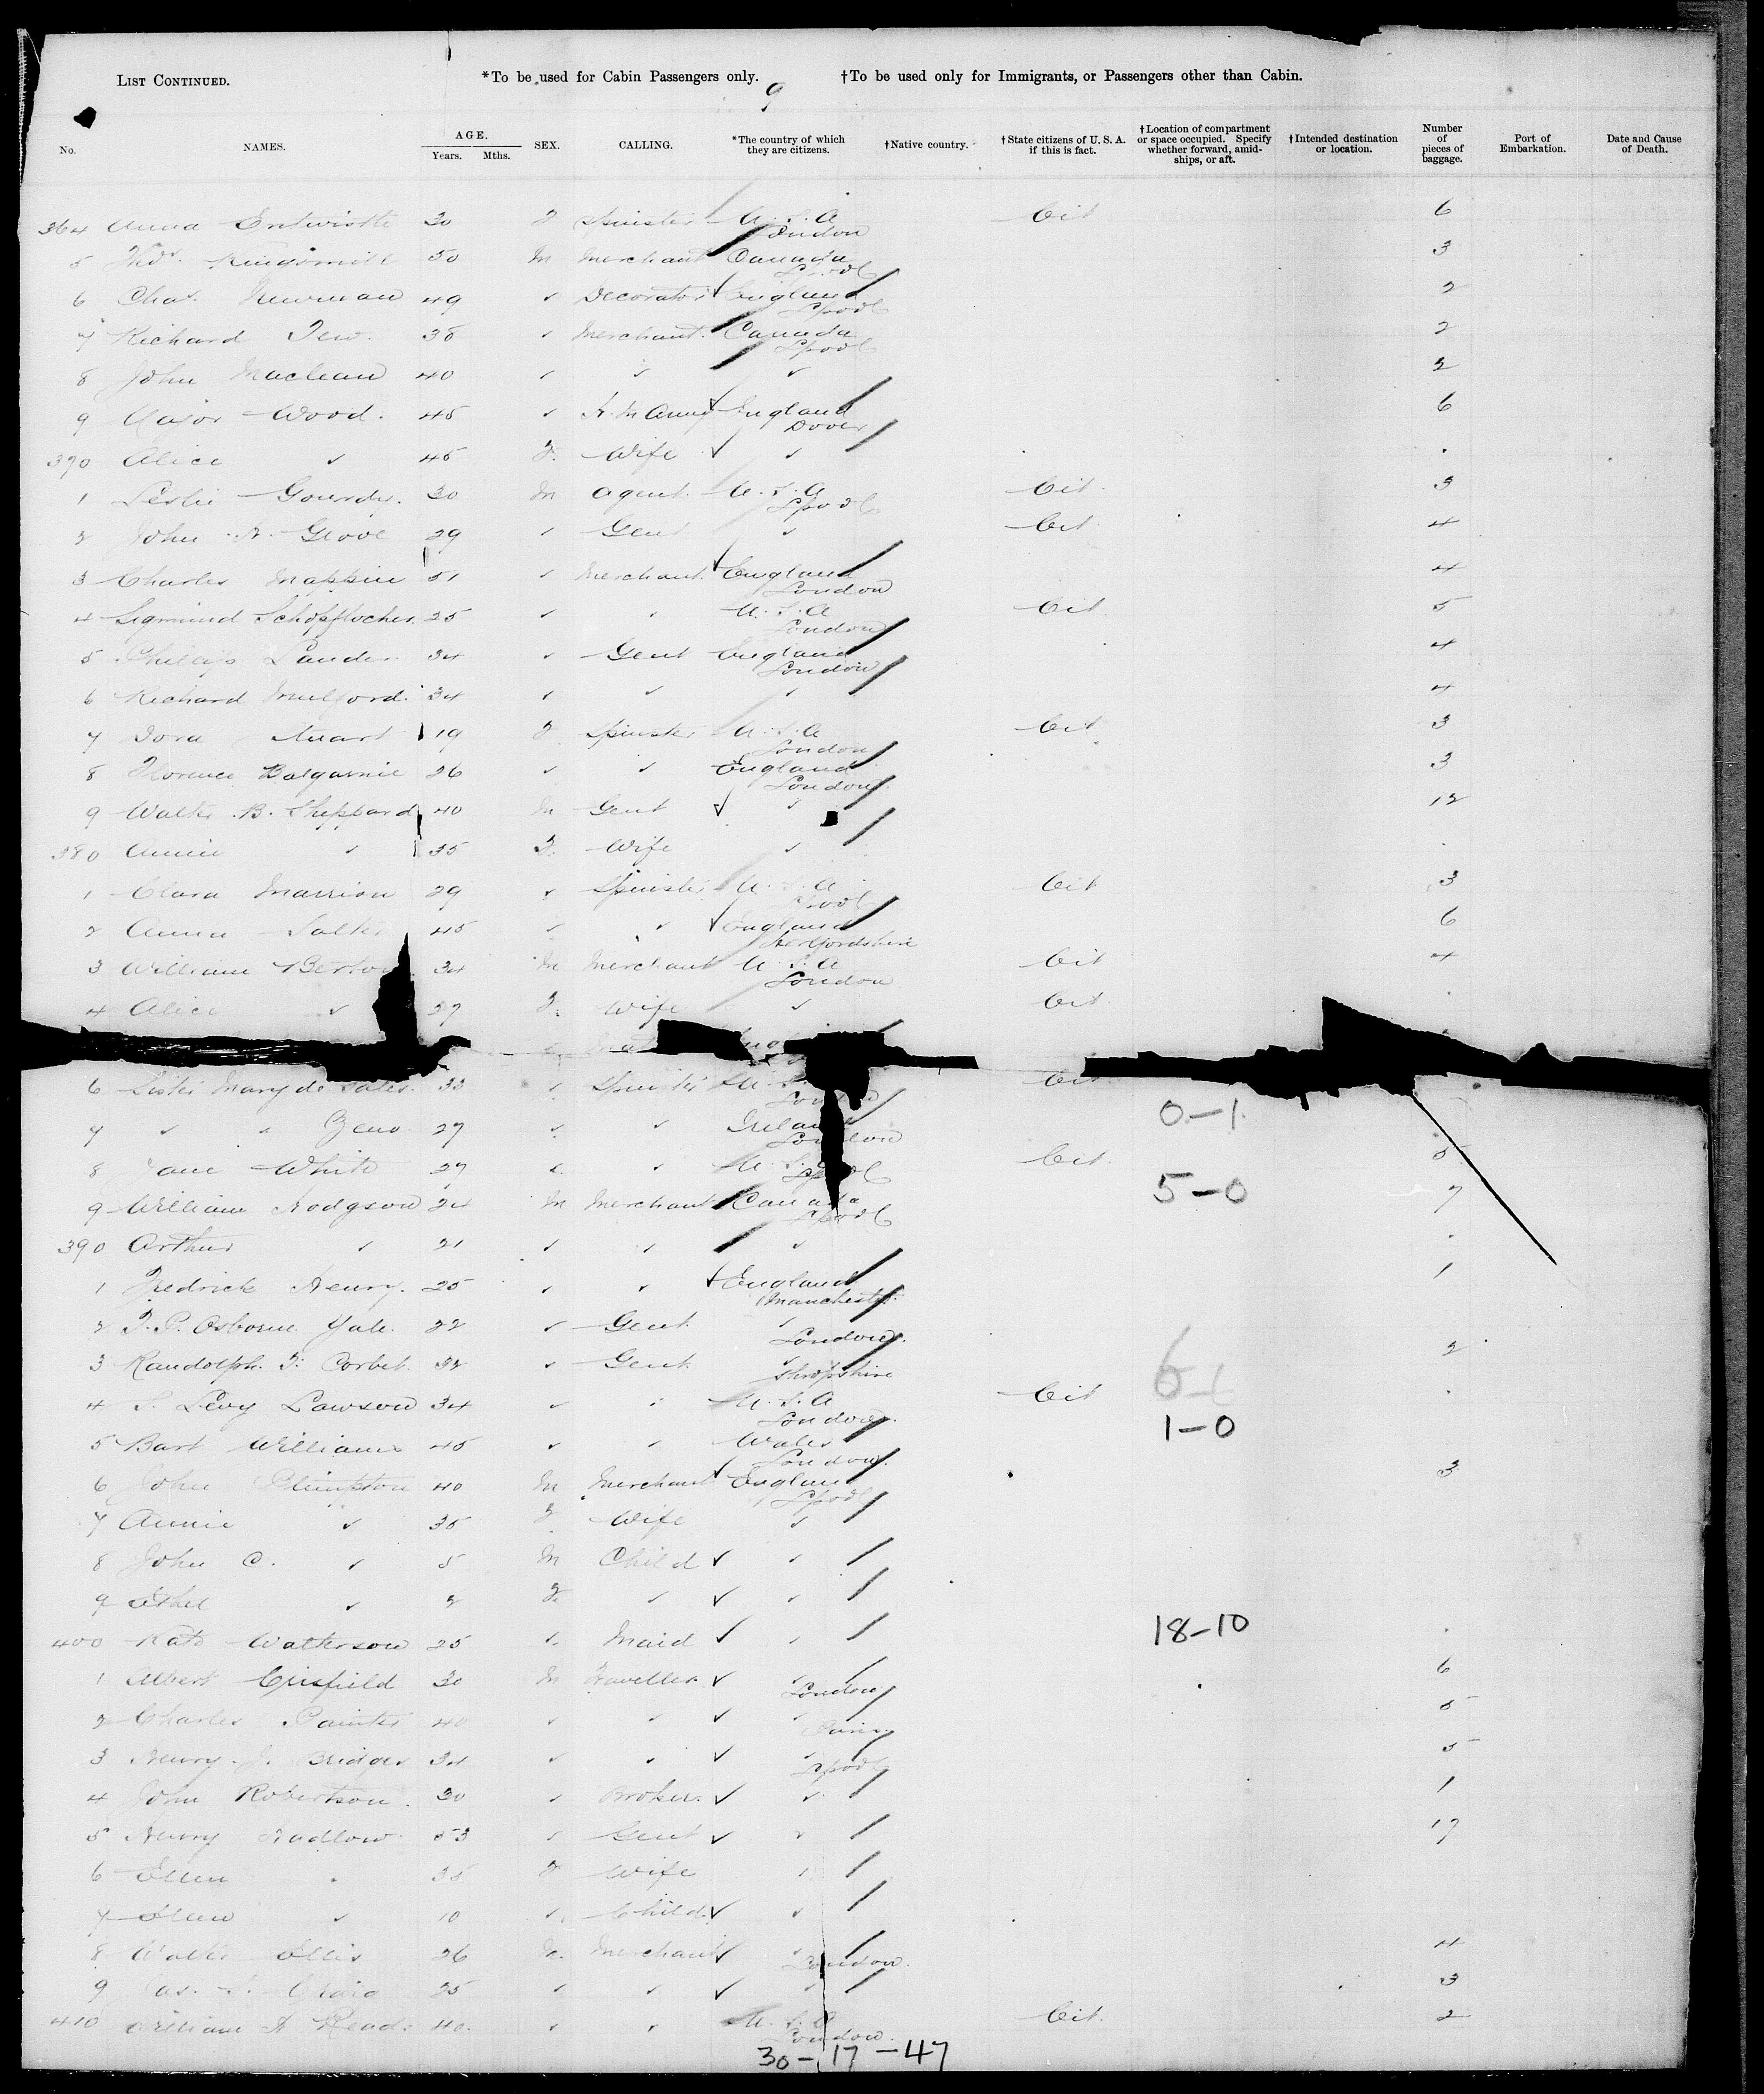 LIST CONTINUED. *To be used for Cabin Passengers only. †To be used only for Immigrants, or Passengers other than Cabin.
9
No. NAMES. AGE. Years. Mths. SEX. CALLING. *The country of which they are citizens. †Native country. †State citizens of U.S.A. if this is fact. †Location of compartment or space occupied. Specify whether forward, amidships, or aft. †Intended destination or location. Number of pieces of baggage. Port of Embarkation. Date and Cause of Death.
364 Anna Entwistle 30 F Spinster U.S.A Cit 6
London
5 Thos. Kingsmill 50 M Merchant Canada 3
Lpool
6 Chas. Newman 49 ✓ Decorator England 2
Lpool
7 Richard Tew. 38 ✓ Merchant. Canada 2
Lpool
8 John Maclean 40 ✓ ✓ ✓ 2
9 Major Wood. 45 ✓ H.M Army England 6
Dover
370 Alice ✓ 45 F. Wife ✓
1 Leslie 30 M Agent. U.S.A Cit 3
Lpool
2 John Grove 29 ✓ Gent ✓ Cit 4
3 Charles Mappin 51 ✓ Merchant. England 4
London
4 Sigmund Schopflocher. 25 ✓ ✓ U.S.A Cit 5
London
5 Phillip 34 ✓ Gent England 4
London
6 Richard Mulford. 34 ✓ ✓ ✓ 4
7 Dora Stuart 19 F Spinster U.S.A Cit 3
London
8 Florence Balgarnie 26 ✓ ✓ England 3
London
9 Walter B. Sheppard 40 M Gent ✓ 12
380 Annie ✓ 35 F. Wife ✓
1 Clara Marrion 29 ✓ Spinster U.S.A Cit 3
Lpool
2 Anna Salter 45 ✓ ✓ England 6
Hertfordshire
3 William 34 M Merchant U.S.A Cit 4
London
4 Alice ✓ 27 F. Wife ✓ Cit
6 Sister Mary de Sales. 33 ✓ Spinster Cit
0-1
7 ✓ ✓ Zeno 27 ✓ ✓ Ireland
London
8 Jane White 27 ✓ ✓ U.S.A Cit. 5
Lpool
5-0
9 William Hodgson 24 M Merchant Canada 7
Lpool
390 Arthur ✓ 21 ✓ ✓ ✓
1 Fredrick Henry. 25 ✓ ✓ England 1
Manchester
2 T.P. Osborne Yale. 22 ✓ Gent. ✓
London.
3 Randolph. F. Corbet. 32 ✓ Gent. ✓ 2
Shropshire
4 S. Levy Lawson 34 ✓ ✓ U.S.A Cit
London.
1-0
5 Bart Williams 45 ✓ ✓ Wales
London.
6 John Plimpton 40 M Merchant England 3
Lpool
7 Annie ✓ 35 F Wife ✓
8 John C. ✓ 5 M Child ✓
9 Ethel ✓ 2 F. ✓ ✓
18-10
400 Kate Watterson 25 ✓ Maid ✓
1 Albert Crisfield 30 M Traveller ✓ 6
London
2 Charles Painter 40 ✓ ✓ ✓ 5
Paris.
3 Henry J. Bridges 34 ✓ ✓ ✓ 5
Lpool
4 John Robertson. 30 ✓ Broker. ✓ 1
5 Henry 53 ✓ Gent ✓ 17
6 Ellen 35 F Wife
7 Ellen ✓ 10 ✓ Child ✓
8 Walter Ellis 26 M. Merchant ✓ 4
London.
9 Craig 25 ✓ ✓ ✓ 3
410 William A Read. 40. ✓ ✓ U.S.A Cit. 2
London.
30-17-47